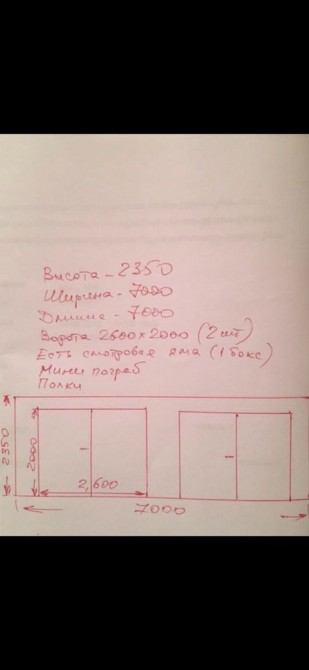 Высота - 2350
Ширина - 7000
Длина - 7000
Ворота 2600×2000 (2 шт)
Есть смотровая яма (1 бокс)
Мини погреб
Полки
2350
2000
2,600
7000